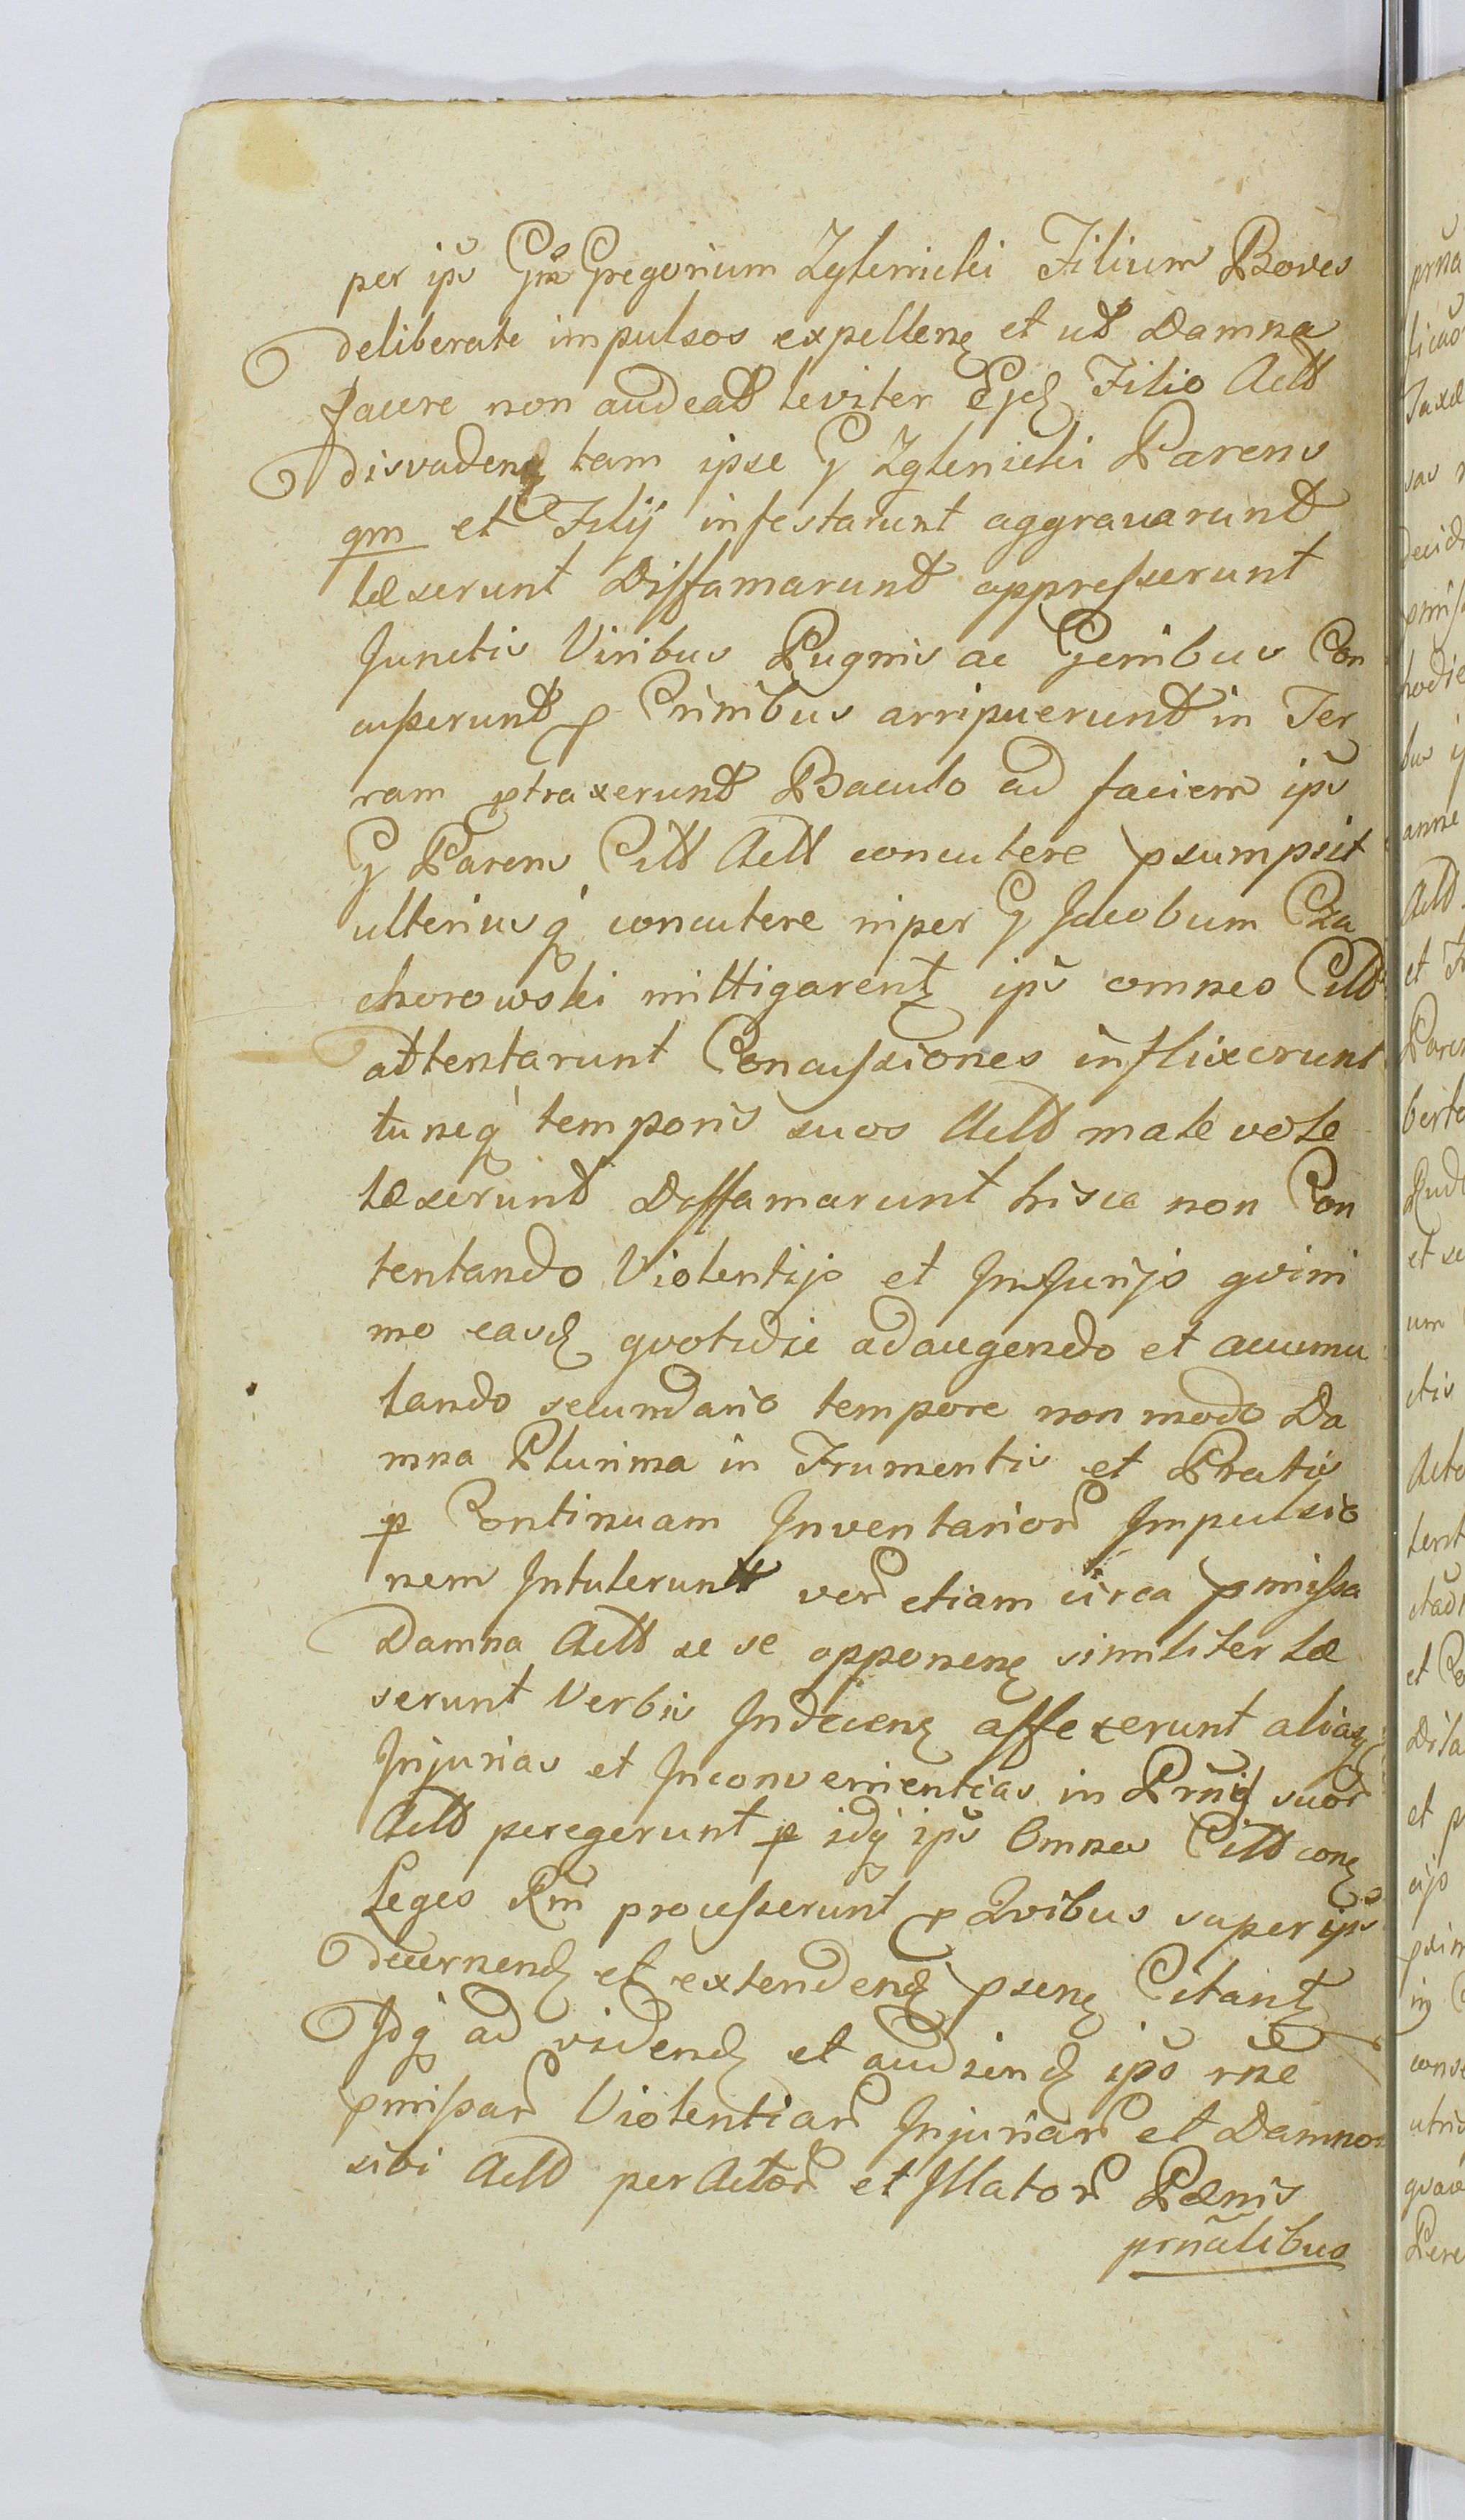 per ips Gnm Gregorium Zglenicki Filium Boves
deliberate impulsos expellen et ut Damna
facere non audeat leviter Ejd Filio Actt
disvaden tam ipse G Zglenicki Parens
qm et Filij infestarunt aggravarunt
læserunt Diffamarunt oppresserunt
Junctis Viribus Pugnis ac Genibus Con
cusserunt p Crinibus arripuerunt in Ter
ram ptraxerunt Baculo ad faciem ips
G Parens Citt Actt concutere psumpsit
ulteriusq concutere niper G Jacobum Cza
chorowski mittigarent ips omnes Citt
attentarunt Concussiones inflixerunt
tuncq temporis suos Actt male vole
læserunt Diffamarunt hisce non Con
tentando Violentijs et Injurijs qvini
mo easd qvotidie adaugendo et accumu
lando secundario tempore non modo Da
mna Plurima in Frumentis et Pratis
p Continuam Inventarior Impulsio
nem Intulerunt ver etiam circa pmissa
Damna Actt se se opponen similiter læ
serunt Verbis Indecen affecerunt aliasq
Injurias et Inconvenientias in Pnniq suor
Actt peregerunt p idq ips Omnes Citt con
Leges Rni processerunt p Qvibus super ips
decernend et extendend psen Citant
Idq ad vidend et audiend ips rne
pmissar Violentiar Injuriar et Damnor
sibi Actt per Actor et Illator Pænis
prnalibus